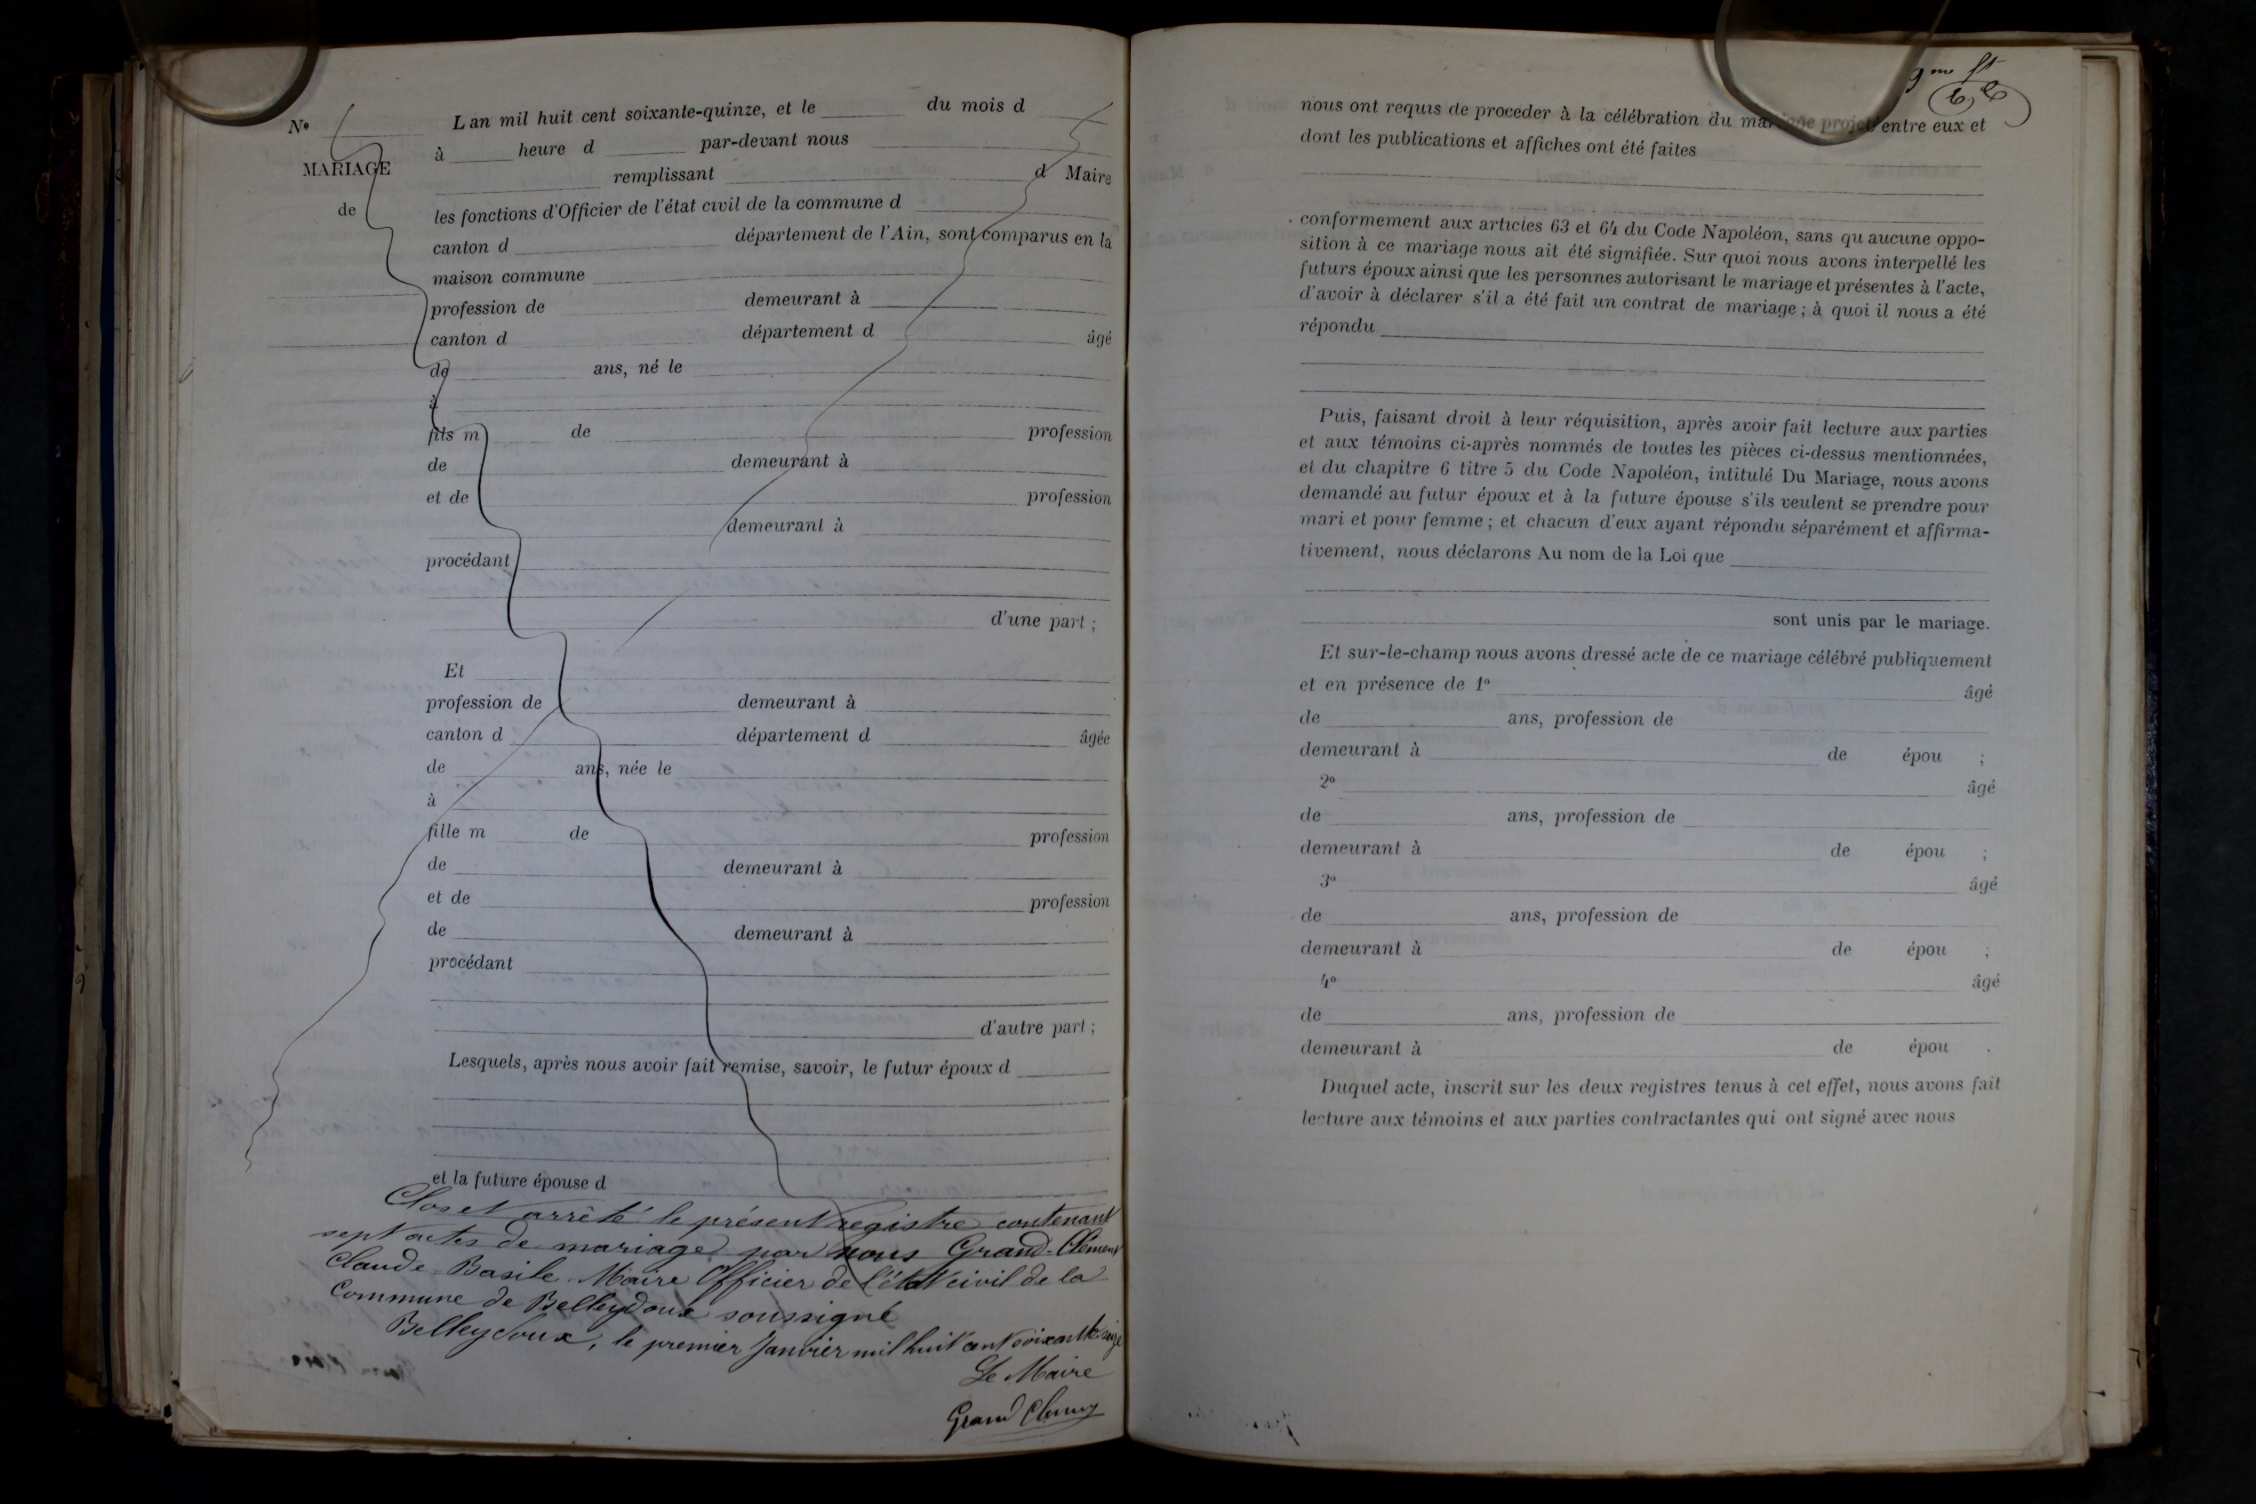 N°
MARIAGE
de
L an mil huit cent soixante-quinze, et le du mois d
à heure d par-devant nous
remplissant d Maire
les fonctions d'Officier de l'état civil de la commune d
canton d département de l'Ain, sont comparus en la
maison commune
profession de demeurant à
canton d département d âgé
de ans, né le
à
fils m de profession
de demeurant à
et de profession
demeurant à
procédant
d'une part ;
Et
profession de demeurant à
canton d département d âgée
de ans, née le
à
fille m de profession
de demeurant à
et de profession
de demeurant à
procédant
d'autre part ;
Lesquels, après nous avoir fait remise, savoir, le futur époux d
et la future épouse d
Clos et arrêté le présent registre contenant
sept actes de mariage par nous Grand-Clément
Claude-Basile Maire Officier de l'état civil de la
Commune de Belleydoux soussigné
Belleydoux, le premier Janvier mil huit cent soixante seize
Le Maire
Grand Clément
9me ft
nous ont requis de proceder à la célébration du mariage projeté entre eux et
dont les publications et affiches ont été faites
conformement aux articles 63 et 64 du Code Napoléon, sans qu aucune oppo-
sition à ce mariage nous ait été signifiée. Sur quoi nous avons interpellé les
futurs époux ainsi que les personnes autorisant le mariage et présentes à l'acte,
d'avoir à déclarer s'il a été fait un contrat de mariage ; à quoi il nous a été
répondu
Puis, faisant droit à leur réquisition, après avoir fait lecture aux parties
et aux témoins ci-après nommés de toutes les pièces ci-dessus mentionnées,
et du chapitre 6 titre 5 du Code Napoléon, intitulé Du Mariage, nous avons
demandé au futur époux et à la future épouse s'ils veulent se prendre pour
mari et pour femme ; et chacun d'eux ayant répondu séparément et affirma-
tivement, nous déclarons Au nom de la Loi que
sont unis par le mariage.
Et sur-le-champ nous avons dressé acte de ce mariage célébré publiquement
et en présence de 1° âgé
de ans, profession de
demeurant à de épou ;
2° âgé
de ans, profession de
demeurant à de épou ;
3° âgé
de ans, profession de
demeurant à de épou ;
4° âgé
de ans, profession de
demeurant à de épou .
Duquel acte, inscrit sur les deux registres tenus à cet effet, nous avons fait
lecture aux témoins et aux parties contractantes qui ont signé avec nous